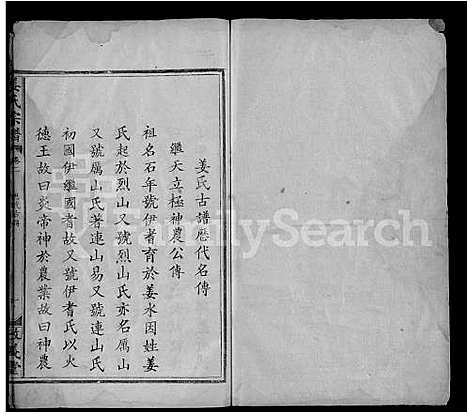 姜氏古譜歷代名傳
繼天立極神農公傳
祖名石年號伊耆育於姜水因姓姜
氏起於烈山又號烈山氏亦名厲山
又號厲山氏著連山易又號連山氏
初國伊繼國耆故又號伊耆氏以火
德王故曰炎帝神於農業故曰神農
姜氏宗譜
FamilySearch